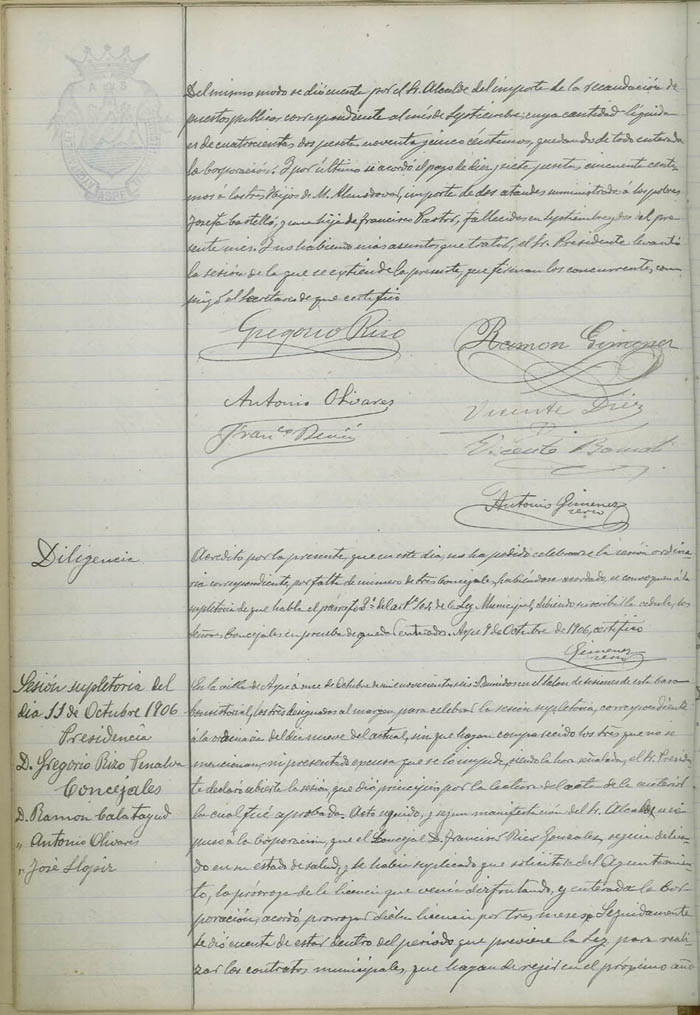 Del mismo modo se dió cuenta por el Sr. Alcalde del importe de la recaudación de
puestos publicos correspondiente al mes de Septiembre, cuya cantidad líquida
es de cuatrocientas dos pesetas noventa y cinco céntimos, quedando de todo enterada
la Corporación. Y por último se acordó el pago de diez y siete pesetas, cincuenta centi-
mos a los tres Hijos de M. Almodovar, importe de dos ataudes suministrados a los pobres
Josefa Castelló, y una hija de Francisco Pastor, fallecidos en Septiembre y dos del pre-
sente mes. Y no habiendo más asuntos que tratar, el Sr. Presidente levantó
la sesión de la que se extiende la presente, que firman los concurrentes, con-
migo el Secretario de que certifico
Gregorio Rizo
Ramon Gimenez
Antonio Olivares
Vicente Diez
Fran.co
Vicente
Antonio Gimenez
srio
Diligencia
Acredito por la presente, que en este dia, no ha podido celebrarse la sesión ordina-
ria correspondiente, por falta de número de tres Concejales, habiéndose acordado, se convoquen á la
supletoria de que habla el párrafo 2º del artº 104 de la Ley Municipal, debiendo suscribir la cedula, los
señores Concejales en prueba de quedar enterados. Aspe 9 de Octubre de 1906, certifico
Gimenez
srio
Sesión supletoria del
dia 11 de Octubre 1906
Presidencia
D. Gregorio Rizo Penalva
Concejales
D. Ramon Calatayud
" Antonio Olivares
" José Llopiz
En la villa de Aspe á once de Octubre de mil novecientos seis. Reunidos en el Salon de sesiones de esta casa
Consistorial, los tres designados al margen, para celebrar la sesión supletoria, correspondiente
á la ordinaria del dia nueve del actual, sin que hayan comparecido los tres que no se
mencionan, ni presentado excusa que se lo impida, siendo la hora señalada, el Sr. Presiden-
te declaró abierta la sesión, que dió principio por la lectura del acta de la anterior
la cual fué aprobada. Acto seguido, y segun manifestación del Sr. Alcalde se ex-
puso á la Corporación, que el Concejal D. Francisco Rico Gonzalez, seguia delica-
do en su estado de salud, y se habia suplicado que solicitase del Ayuntamien-
to, la prórroga de la licencia que venia disfrutando, y enterada la Cor-
poración, acordó prorrogar dicha licencia por tres meses. Seguidamente
se dió cuenta de estar dentro del período que previene la Ley para reali-
zar los contratos municipales, que hayan de rejir en el próximo año